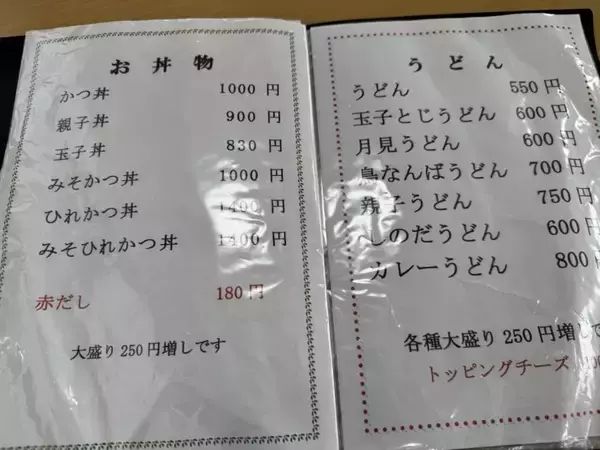 お丼物
かつ丼 1000円
親子丼 900円
玉子丼 830円
みそかつ丼 1000円
ひれかつ丼 1400円
みそひれかつ丼 1400円
赤だし 180円
大盛り250円増しです
うどん
うどん 550円
玉子とじうどん 600円
月見うどん 600円
鳥なんばうどん 700円
親子うどん 750円
しのだうどん 600円
カレーうどん 800
各種大盛り250円増しで
トッピングチーズ